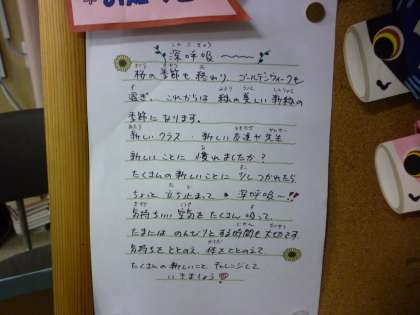 しんこきゅう
深呼吸
桜の季節も終わり、ゴールデンウィークも
過ぎ、これからは 緑の美しい新緑の
季節になります。
新しいクラス・新しい友達や先生
新しいことに 慣れましたか?
たくさんの新しいことに 少しつかれたら
ちょっと 立ち止まって 深呼吸ー!!
気持ちいい 空気を たくさん 吸って、
たまには のんびりと する時間も 大切です
気持ちを ととのえ、体を ととのえて
たくさんの新しいこと チャレンジして
いきましょう